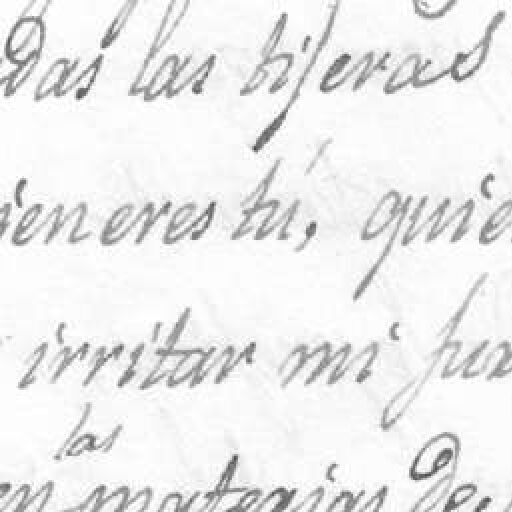 das las tijeras
ien eres tú, quie
irritar mi fur
las
en materias de